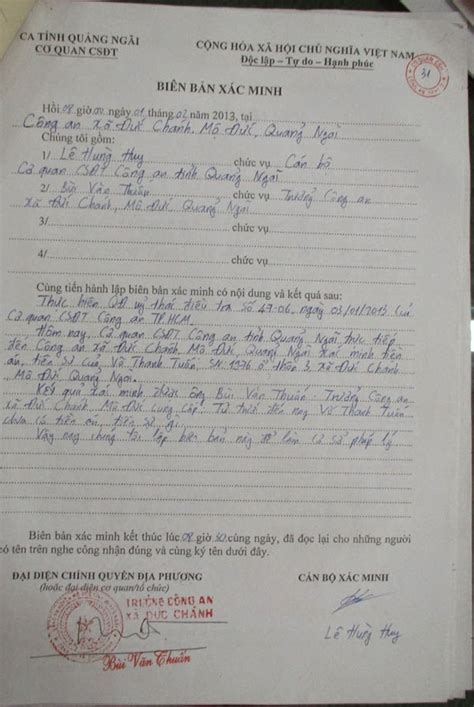 CA TỈNH QUẢNG NGÃI
CƠ QUAN CSĐT
CỘNG HÒA XÃ HỘI CHỦ NGHĨA VIỆT NAM
Độc lập – Tự do – Hạnh phúc
31
BIÊN BẢN XÁC MINH
Hồi 08 giờ 00, ngày 01 tháng 02 năm 2013, tại
Công an xã Đức Chánh, Mộ Đức, Quảng Ngãi
Chúng tôi gồm:
1/ Lê Hùng Huy chức vụ Cán bộ
Cơ quan CSĐT Công an tỉnh Quảng Ngãi
2/ Bùi Văn Thuấn chức vụ Trưởng Công an
xã Đức Chánh, Mộ Đức, Quảng Ngãi
3/ chức vụ
4/ chức vụ
Cùng tiến hành lập biên bản xác minh có nội dung và kết quả sau:
Thực hiện QĐ uỷ thác điều tra Số 47-06, ngày 03/01/2013 của
Cơ quan CSĐT Công an TP.HCM.
Hôm nay, Cơ quan CSĐT Công an tỉnh Quảng Ngãi trực tiếp
đến Công an xã Đức Chánh, Mộ Đức, Quảng Ngãi xác minh tiền
án, tiền sự của Võ Thanh Tuấn, SN 1976 ở thôn 3, xã Đức Chánh
Mộ Đức, Quảng Ngãi.
Kết quả xác minh được ông Bùi Văn Thuấn - Trưởng Công an
xã Đức Chánh, Mộ Đức cung cấp: Từ trước đến nay Võ Thanh Tuấn
chưa có tiền án, tiền sự gì.
Vậy nay chúng tôi lập biên bản này để làm cơ sở pháp lý
Biên bản xác minh kết thúc lúc 08 giờ 30 cùng ngày, đã đọc lại cho những người
có tên trên nghe công nhận đúng và cùng ký tên dưới đây.
ĐẠI DIỆN CHÍNH QUYỀN ĐỊA PHƯƠNG
(hoặc đại diện cơ quan/tổ chức)
CÁN BỘ XÁC MINH
TRƯỞNG CÔNG AN
XÃ ĐỨC CHÁNH
Bùi Văn Thuấn
Lê Hùng Huy